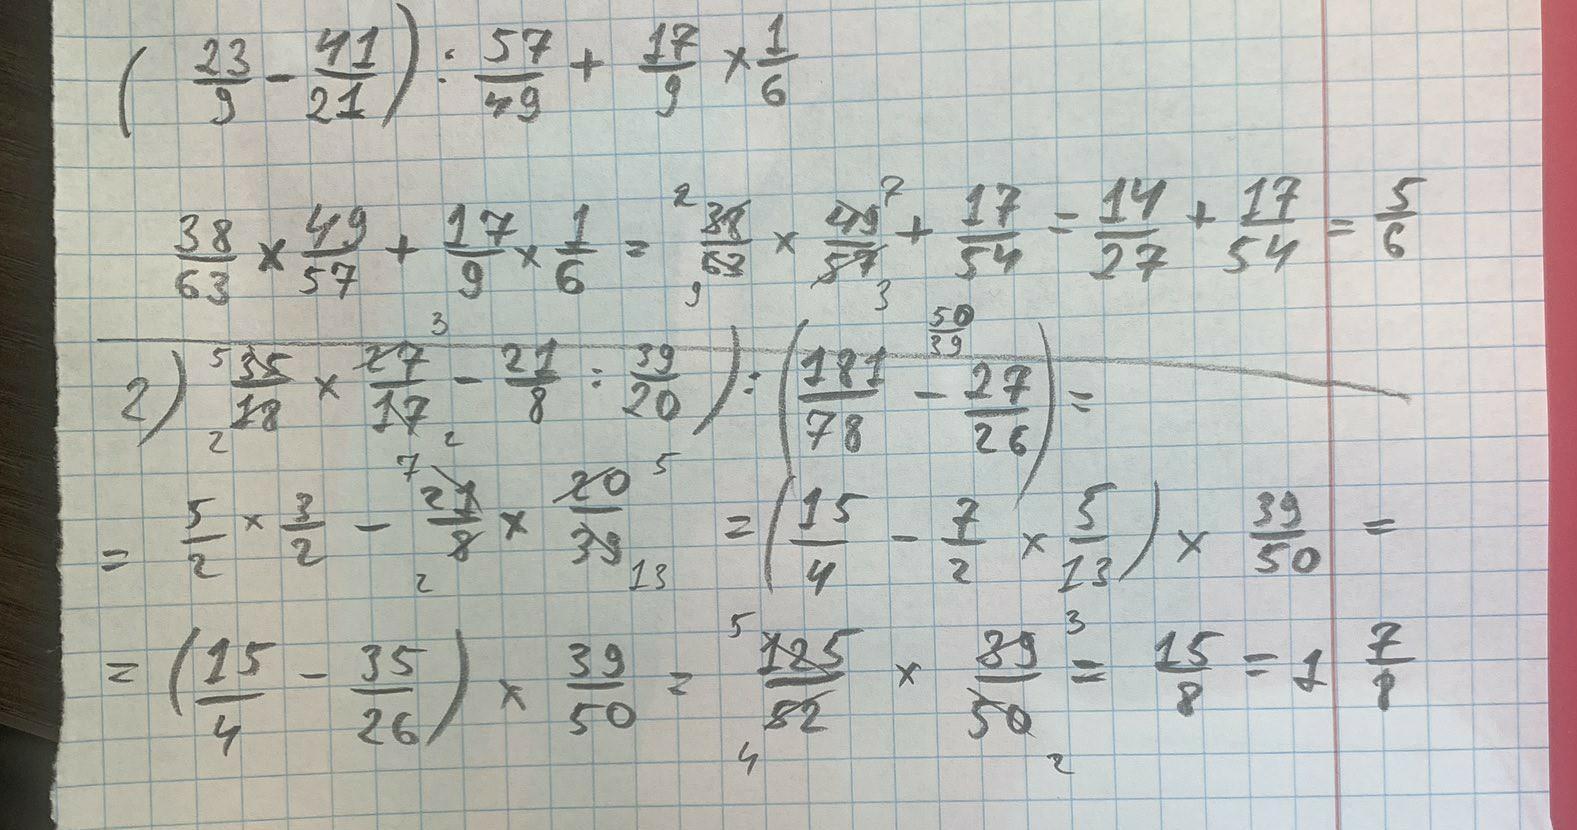 ( 23/9 - 41/21 ) : 57/49 + 17/9 × 1/6
38/63 × 49/57 + 17/9 × 1/6 = 2 38/63 9 × 49/57 7 3 + 17/54 = 14/27 + 17/54 = 5/6
2) 5 35/18 2 × 27/17 3 2 - 21/8 : 39/20 ) : ( 181/78 - 27/26 ) = 50/39
= 5/2 × 3/2 - 7 21/8 2 × 20/39 5 13 = ( 15/4 - 7/2 × 5/13 ) × 39/50 =
= ( 15/4 - 35/26 ) × 39/50 = 5 125/52 4 × 39/50 3 2 = 15/8 = 1 7/8